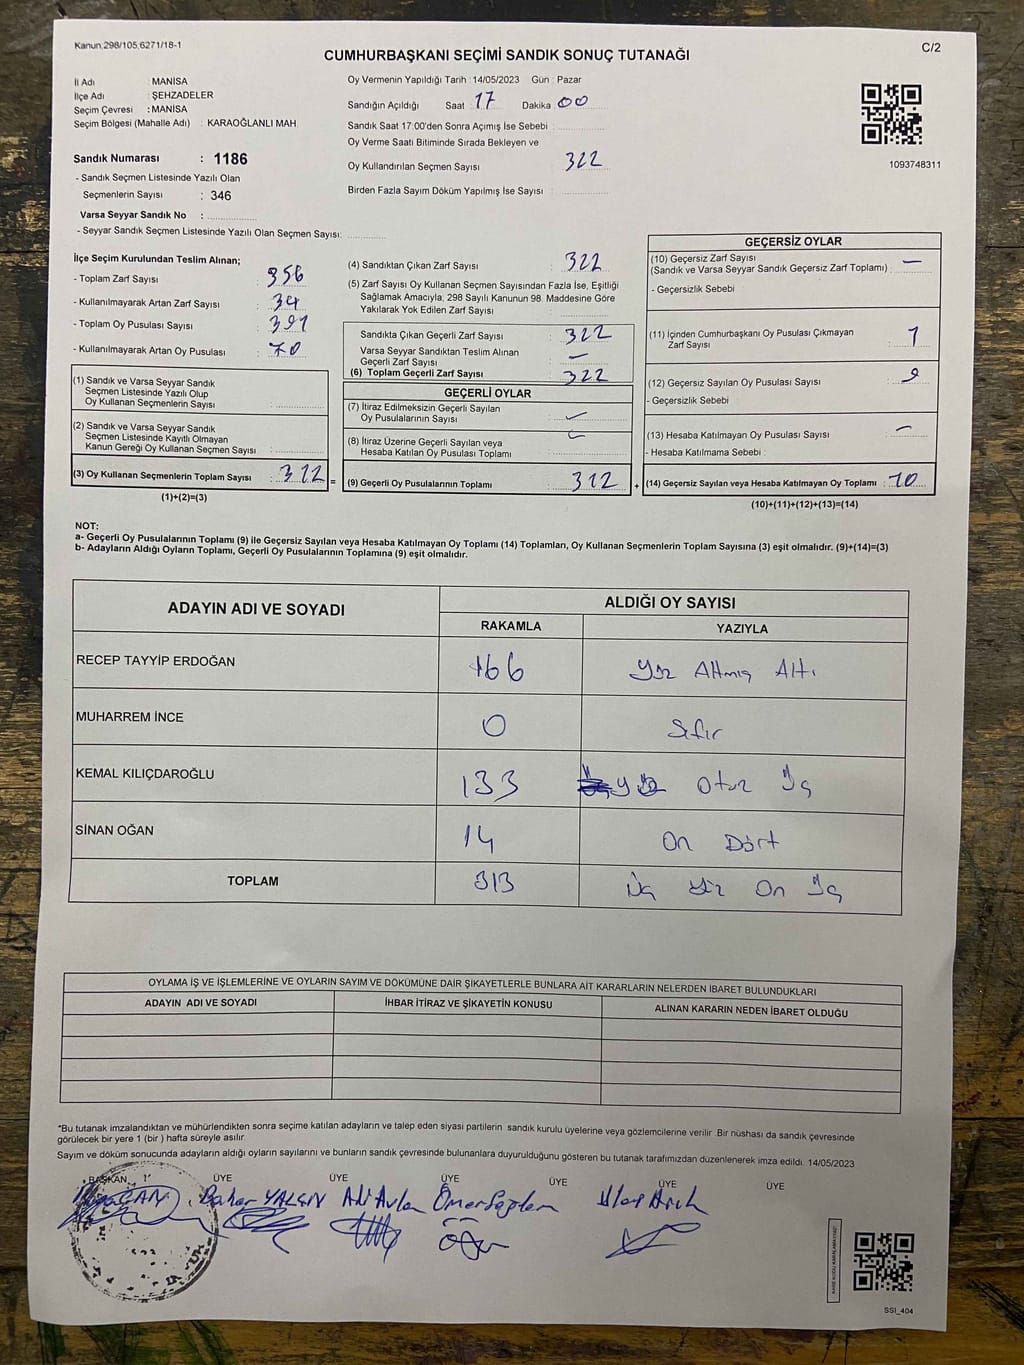 Kanun:298/105;6271/18-1
C/2
CUMHURBAŞKANI SEÇİMİ SANDIK SONUÇ TUTANAĞI
İl Adı : MANİSA
İlçe Adı : ŞEHZADELER
Seçim Çevresi : MANİSA
Seçim Bölgesi (Mahalle Adı) : KARAOĞLANLI MAH.
Sandık Numarası : 1186
- Sandık Seçmen Listesinde Yazılı Olan
Seçmenlerin Sayısı : 346
Varsa Seyyar Sandık No :
- Seyyar Sandık Seçmen Listesinde Yazılı Olan Seçmen Sayısı:
Oy Vermenin Yapıldığı Tarih : 14/05/2023 Gün : Pazar
Sandığın Açıldığı Saat 17 Dakika 00
Sandık Saat 17:00'den Sonra Açımış İse Sebebi :
Oy Verme Saati Bitiminde Sırada Bekleyen ve
Oy Kullandırılan Seçmen Sayısı : 322
Birden Fazla Sayım Döküm Yapılmış İse Sayısı :
1093748311
İlçe Seçim Kurulundan Teslim Alınan;
- Toplam Zarf Sayısı : 356
- Kullanılmayarak Artan Zarf Sayısı : 34
- Toplam Oy Pusulası Sayısı : 391
- Kullanılmayarak Artan Oy Pusulası : 70
(1) Sandık ve Varsa Seyyar Sandık
Seçmen Listesinde Yazılı Olup
Oy Kullanan Seçmenlerin Sayısı :
(2) Sandık ve Varsa Seyyar Sandık
Seçmen Listesinde Kayıtlı Olmayan
Kanun Gereği Oy Kullanan Seçmen Sayısı :
(3) Oy Kullanan Seçmenlerin Toplam Sayısı : 322 =
(1)+(2)=(3)
(4) Sandıktan Çıkan Zarf Sayısı : 322
(5) Zarf Sayısı Oy Kullanan Seçmen Sayısından Fazla İse, Eşitliği
Sağlamak Amacıyla; 298 Sayılı Kanunun 98. Maddesine Göre
Yakılarak Yok Edilen Zarf Sayısı :
Sandıkta Çıkan Geçerli Zarf Sayısı : 322
Varsa Seyyar Sandıktan Teslim Alınan
Geçerli Zarf Sayısı : —
(6) Toplam Geçerli Zarf Sayısı : 322
GEÇERLİ OYLAR
(7) İtiraz Edilmeksizin Geçerli Sayılan
Oy Pusulalarının Sayısı :
(8) İtiraz Üzerine Geçerli Sayılan veya
Hesaba Katılan Oy Pusulası Toplamı :
(9) Geçerli Oy Pusulalarının Toplamı : 312 +
GEÇERSİZ OYLAR
(10) Geçersiz Zarf Sayısı
(Sandık ve Varsa Seyyar Sandık Geçersiz Zarf Toplamı) : —
- Geçersizlik Sebebi :
(11) İçinden Cumhurbaşkanı Oy Pusulası Çıkmayan
Zarf Sayısı : 1
(12) Geçersiz Sayılan Oy Pusulası Sayısı : 9
- Geçersizlik Sebebi :
(13) Hesaba Katılmayan Oy Pusulası Sayısı : —
- Hesaba Katılmama Sebebi :
(14) Geçersiz Sayılan veya Hesaba Katılmayan Oy Toplamı : 10
(10)+(11)+(12)+(13)=(14)
NOT:
a- Geçerli Oy Pusulalarının Toplamı (9) ile Geçersiz Sayılan veya Hesaba Katılmayan Oy Toplamı (14) Toplamları, Oy Kullanan Seçmenlerin Toplam Sayısına (3) eşit olmalıdır. (9)+(14)=(3)
b- Adayların Aldığı Oyların Toplamı, Geçerli Oy Pusulalarının Toplamına (9) eşit olmalıdır.
ADAYIN ADI VE SOYADI ALDIĞI OY SAYISI
RAKAMLA YAZIYLA
RECEP TAYYİP ERDOĞAN 166 Yüz Altmış Altı
MUHARREM İNCE 0 Sıfır
KEMAL KILIÇDAROĞLU 133 Yüz Otuz Üç
SİNAN OĞAN 14 On Dört
TOPLAM 313 Üç Yüz On Üç
OYLAMA İŞ VE İŞLEMLERİNE VE OYLARIN SAYIM VE DÖKÜMÜNE DAİR ŞİKAYETLERLE BUNLARA AİT KARARLARIN NELERDEN İBARET BULUNDUKLARI
ADAYIN ADI VE SOYADI İHBAR İTİRAZ VE ŞİKAYETİN KONUSU ALINAN KARARIN NEDEN İBARET OLDUĞU
*Bu tutanak imzalandıktan ve mühürlendikten sonra seçime katılan adayların ve talep eden siyasi partilerin sandık kurulu üyelerine veya gözlemcilerine verilir. Bir nüshası da sandık çevresinde
görülecek bir yere 1 (bir ) hafta süreyle asılır.
Sayım ve döküm sonucunda adayların aldığı oyların sayılarını ve bunların sandık çevresinde bulunanlara duyurulduğunu gösteren bu tutanak tarafımızdan düzenlenerek imza edildi. 14/05/2023
BAŞKAN ÜYE ÜYE ÜYE ÜYE ÜYE ÜYE
Bahar YALÇIN
SSI_404